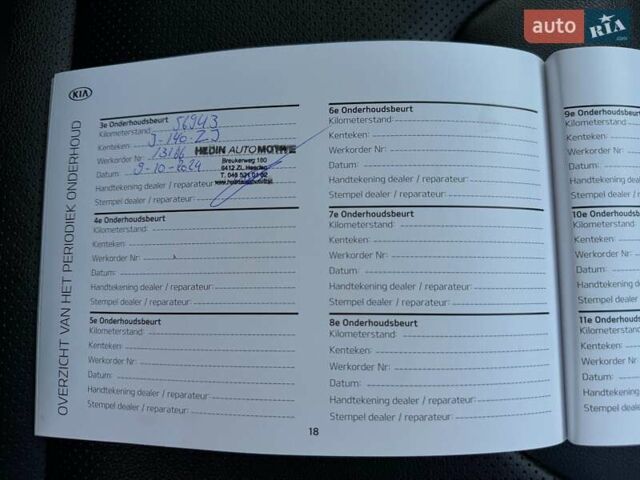 auto RIA .com
KIA
OVERZICHT VAN HET PERIODIEK ONDERHOUD
3e Onderhoudsbeurt
Kilometerstand: 56943
Kenteken: J-140-ZJ
Werkorder Nr: 13186
Datum: 9-10-2024
Handtekening dealer / reparateur:
Stempel dealer / reparateur:
HEDIN AUTOMOTIVE
Breukerweg 180
4e Onderhoudsbeurt
Kilometerstand:
Kenteken:
Werkorder Nr:
Datum:
Handtekening dealer / reparateur:
Stempel dealer / reparateur:
5e Onderhoudsbeurt
Kilometerstand:
Kenteken:
Werkorder Nr:
Datum:
Handtekening dealer / reparateur:
Stempel dealer / reparateur:
6e Onderhoudsbeurt
Kilometerstand:
Kenteken:
Werkorder Nr:
Datum:
Handtekening dealer / reparateur:
Stempel dealer / reparateur:
7e Onderhoudsbeurt
Kilometerstand:
Kenteken:
Werkorder Nr:
Datum:
Handtekening dealer / reparateur:
Stempel dealer / reparateur:
8e Onderhoudsbeurt
Kilometerstand:
Kenteken:
Werkorder Nr:
Datum:
Handtekening dealer / reparateur:
Stempel dealer / reparateur:
18
9e Onderhoudsbeurt
Kilometerstand
Kenteken:
Werkorder Nr:
Datum:
Handtekening
Stempel deale
10e Onderhoud
Kilometerstand
Kenteken:
Werkorder Nr:
Datum:
Handtekening
Stempel deale
11e Onderhouds
Kilometerstand
Kenteken:
Werkorder Nr:
Datum:
Handtekening
Stempel deale